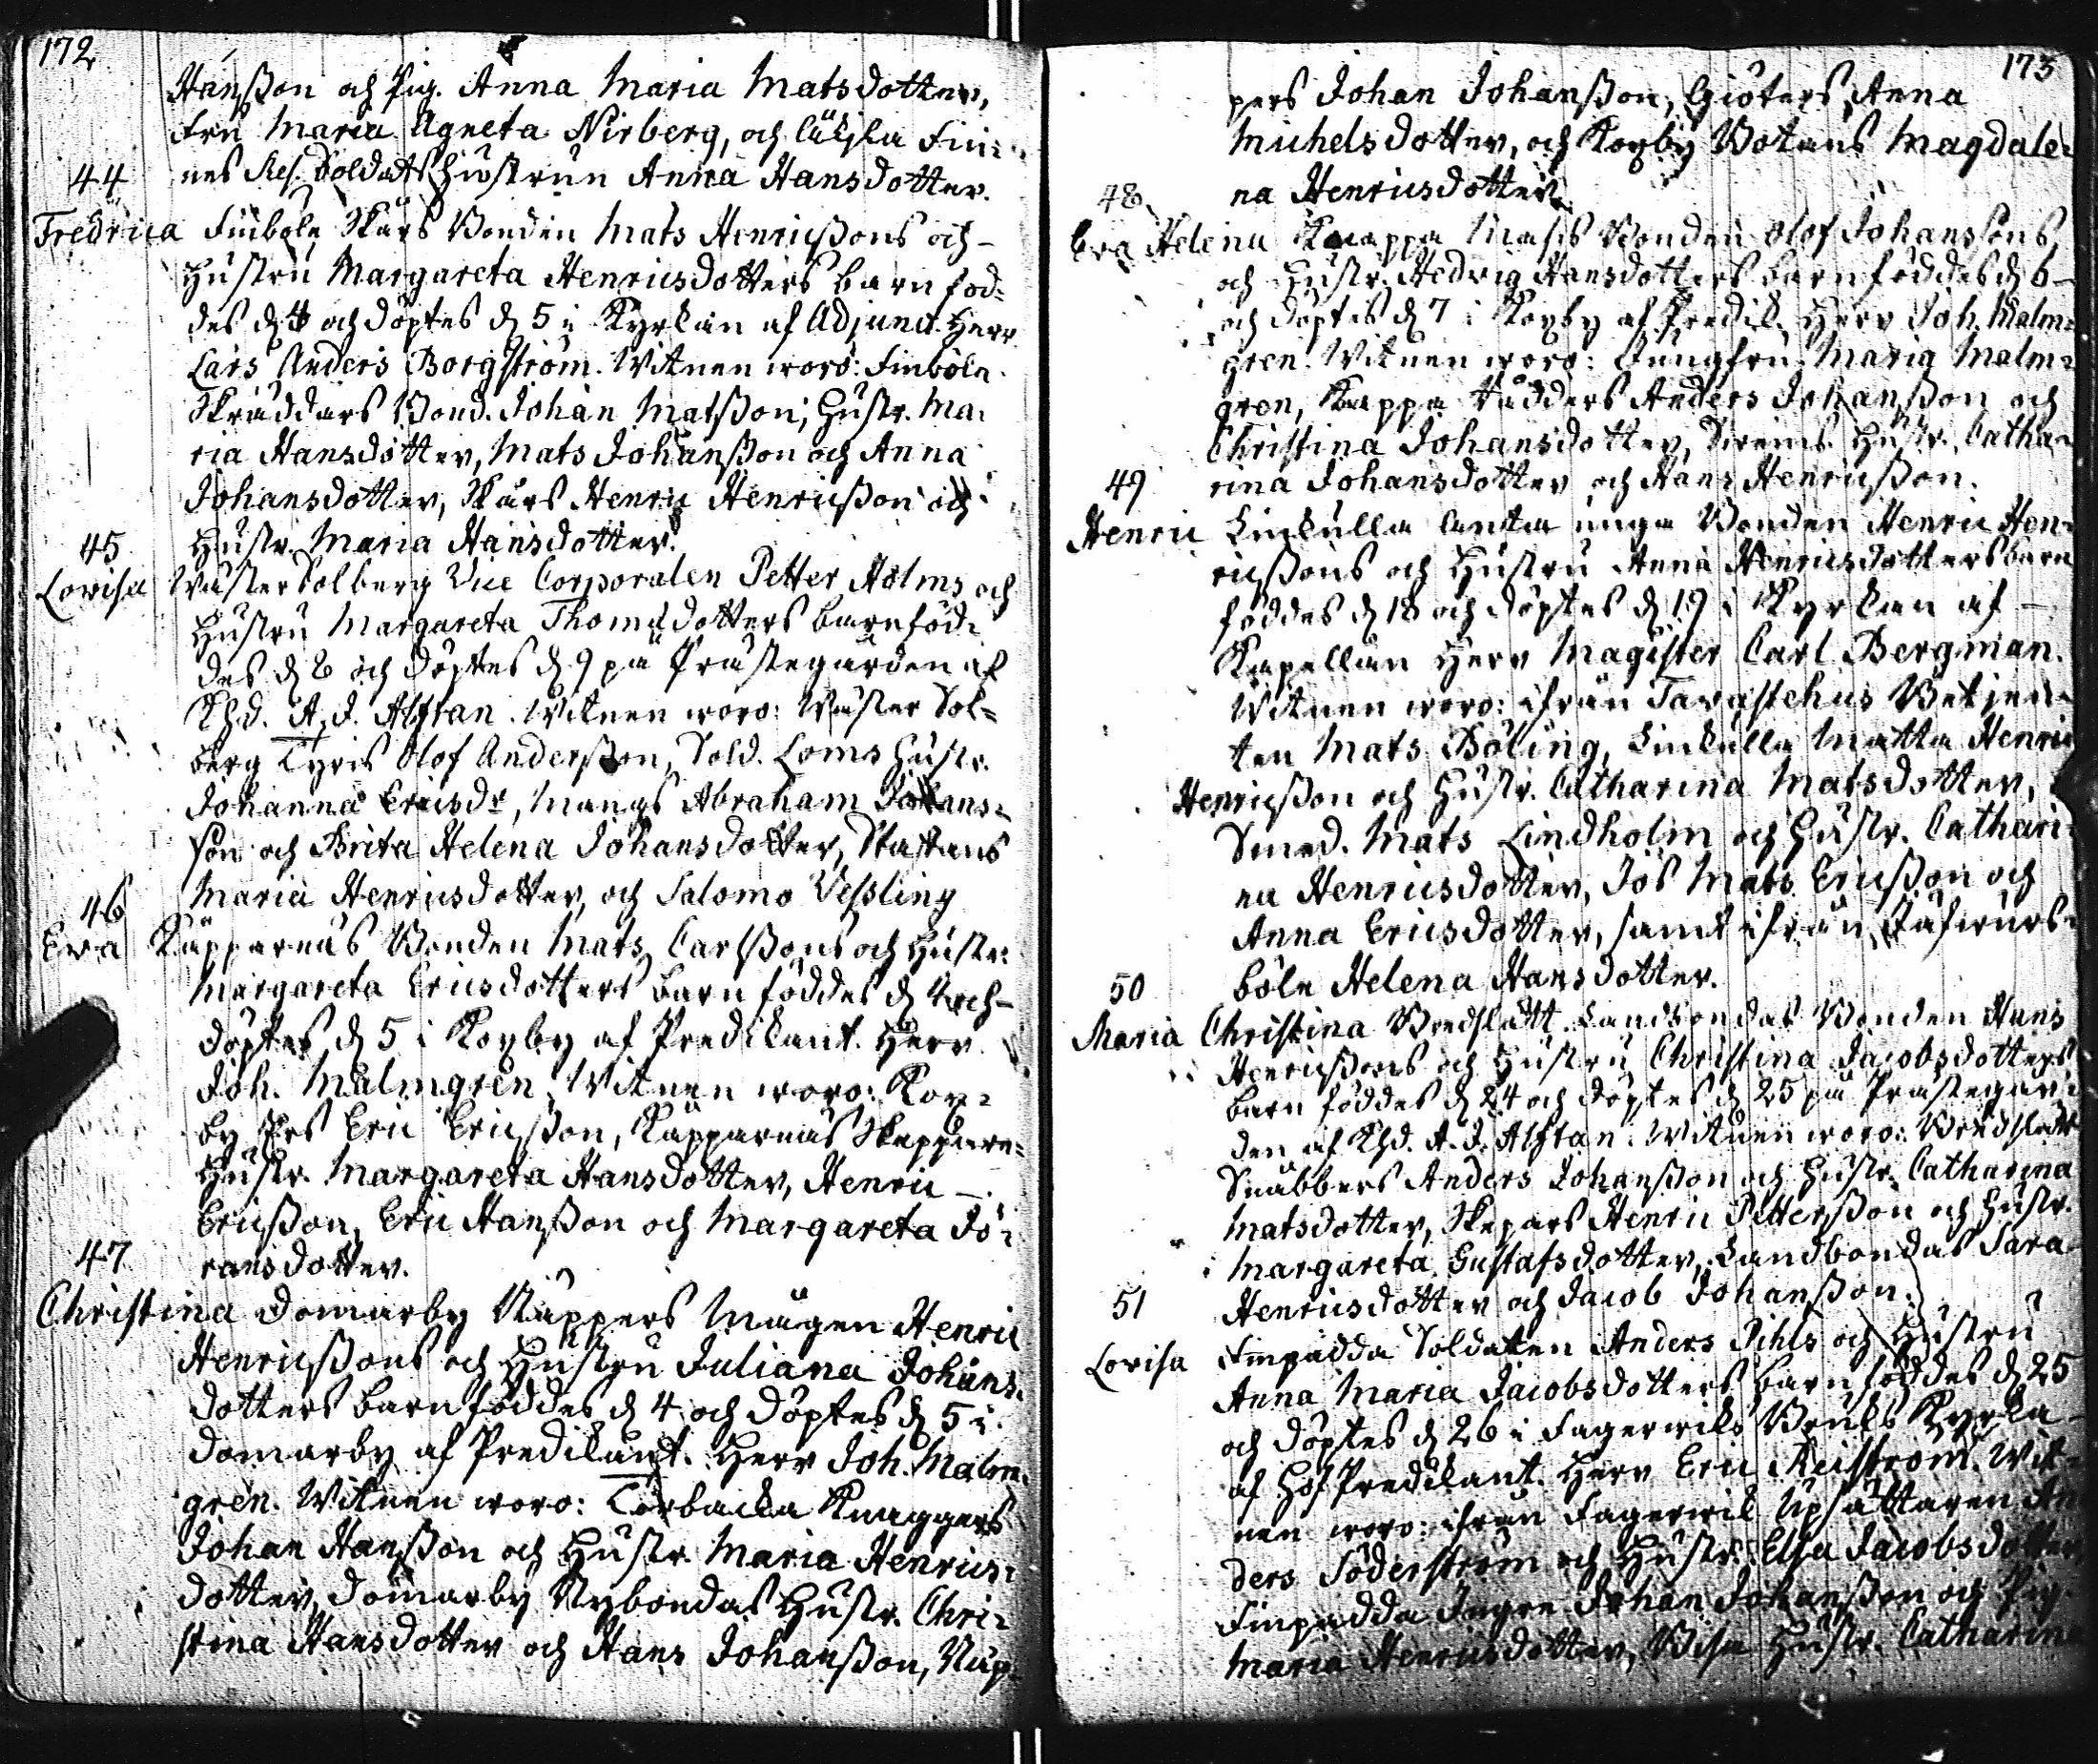 172
Hansson och Pig. Anna Maria Matsdotter,
Fru Maria Agneta Nirberg, och Fin-
nes Res. Soldats Hustrun Anna Hansdotter.
44
Fredrica Finböle Skärs Bonden Mats Henricssons och
Hustru Margareta Henricsdotters barn föd-
des d 4 och döptes d 5 i Kyrkan af Adjunct. Herr
Lars Anders Borgström. Witnen woro: Finböle
Skräddars Bond. Johan Matsson, Hustr. Ma-
ria Hansdotter, Mats Johansson och Anna
Johansdotter, Skärs Henric Henricsson och
Hustr. Maria Hansdotter.
45
Lovisa Wäster Solberg Vice Corporalen Petter Holms och
Hustru Margareta Thomasdotters barn föd-
des d 8 och döptes d 9 på Prästegården af
Khd. A. J. Alftan. Witnen woro: Wäster Sol-
berg Tyris Olof Andersson, Sold. Loms Hustr.
Johanna Ericsdr, Mangs Abraham Johans-
son och Brita Helena Johansdotter,
Maria Henricsdotter, och Salomo Vessling
46
Eva Käpparnäs Bonden Mats Carlssons och Hustr.
Margareta Ericsdotters barn föddes d 4 och
döptes d 5 i Koxby af Predikant. Herr
Joh. Malmgren. Witnen woro: Kox-
by Pers Eric Ericsson, Käpparnäs Skeppare
Hustr. Margareta Hansdotter, Henric
Ericsson, Eric Hansson och Margareta Jö-
ransdotter.
47
Christina Domarby Näppers Mågen Henric
Henricssons och Hustru Juliana Johans-
dotters barn föddes d 4 och döptes d 5 i
Domarby af Predikant. Herr Joh. Malm-
gren. Witnen woro: Torbacka Knaggers
Johan Hansson och Hustr. Maria Henrics-
dotter, Domarby Nybondas Hustr. Chri-
stina Hansdotter och Hans Johansson, Näp-
173
pers Johan Johansson, Giöters Anna
Michelsdotter, och Koxby Botans Magdale-
na Henricsdotter.
48
Eva Helena Knappa Mass Bonden Olof Johanssons
och Hustr. Hedvig Hansdotters barn föddes d 6
och döptes d 7 i Koxby af Predik. Herr Joh. Malm-
gren. Witnen woro: Jungfru Maria Malm-
gren, Anders Johansson och
Christina Johansdotter, Hustr. Catha-
rina Johansdotter och Hans Henricsson.
49
Henric Linkulla unga Bonden Henric Hen-
ricssons och Hustru Anna Henricsdotters barn
föddes d 18 och döptes d 19 i Kyrkan af
Kapellan Herr Magister Carl Bergman.
Witnen woro: ifrån Tavastehus Betjen-
ten Mats Böling, Linkulla Matta Henric
Henricsson och Hustr. Catharina Matsdotter,
Smed. Mats Lindholm och Hustr. Cathari-
na Henricsdotter, Jös Mats Ericsson och
Anna Ericsdotter, samt ifrån
böle Helena Hansdotter.
50
Maria Christina Bredslätt Landbondas Bonden Hans
Henricssons och Hustru Christina Jacobsdotters
barn föddes d 24 och döptes d 25 på Prästegår-
den af Khd. A. J. Alftan. Witnen woro: Bredslätt
Snäbbers Anders Johansson och Hustr. Catharina
Matsdotter, Skepars Henric Pettersson och Hustr.
Margareta Gustafsdotter, Landbondas Sara
Henricsdotter och Jacob Johansson.
51
Lovisa Finpädda Soldaten Anders Pihls och Hustru
Anna Maria Jacobsdotters barn föddes d 25
och döptes d 26 i Fagerwiks Bruks Kyrka
af Hof Predikant. Herr Eric Reiström. Wit-
nen woro: ifrån Fagerwik Upsättaren An-
ders Söderström och Hustr. Elsa Jacobsdotter,
Finpädda Ingen Johan Johansson och Pig.
Maria Henricsdotter, Hustr. Catharina